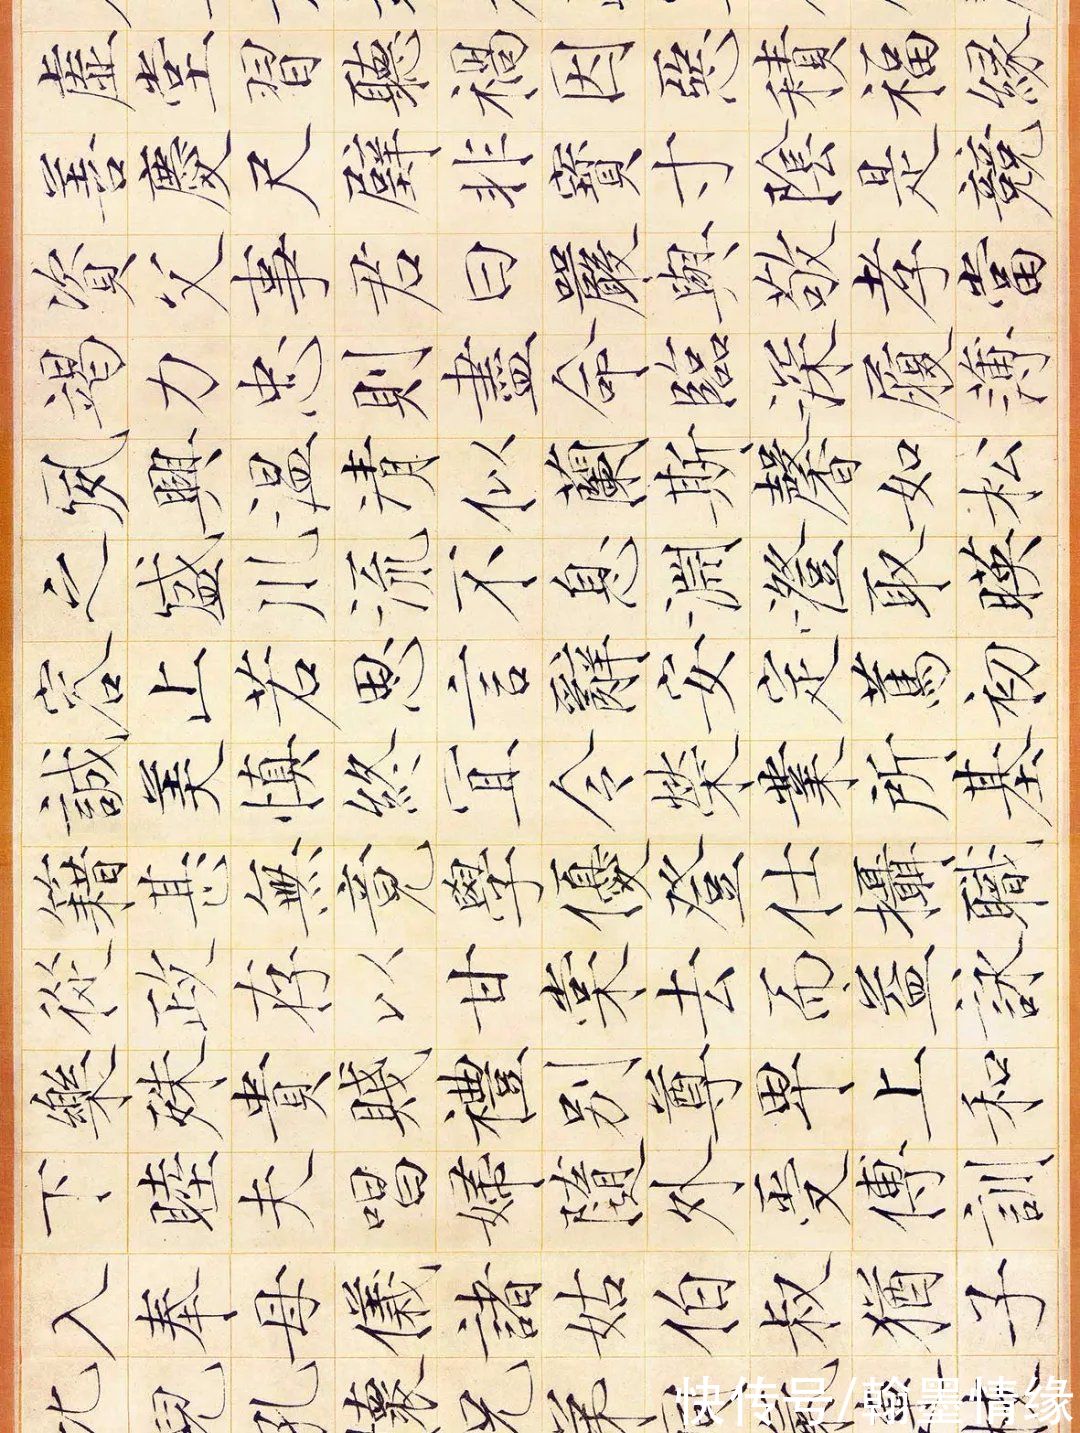 虛堂習聽禍因惡積福緣
善慶尺璧非寶寸陰是競
資父事君曰嚴與敬孝當
竭力忠則盡命臨深履薄
夙興溫清似蘭斯馨如松
之盛川流不息淵澄取暎
容止若思言辭安定篤初
誠美慎終宜令榮業所基
籍甚無竟學優登仕攝職
從政存以甘棠去而益詠
樂殊貴賤禮別尊卑上和
下睦夫唱婦隨外受傅訓
入奉母儀諸姑伯叔猶子
比兒孔懷兄
快传号/翰墨情缘